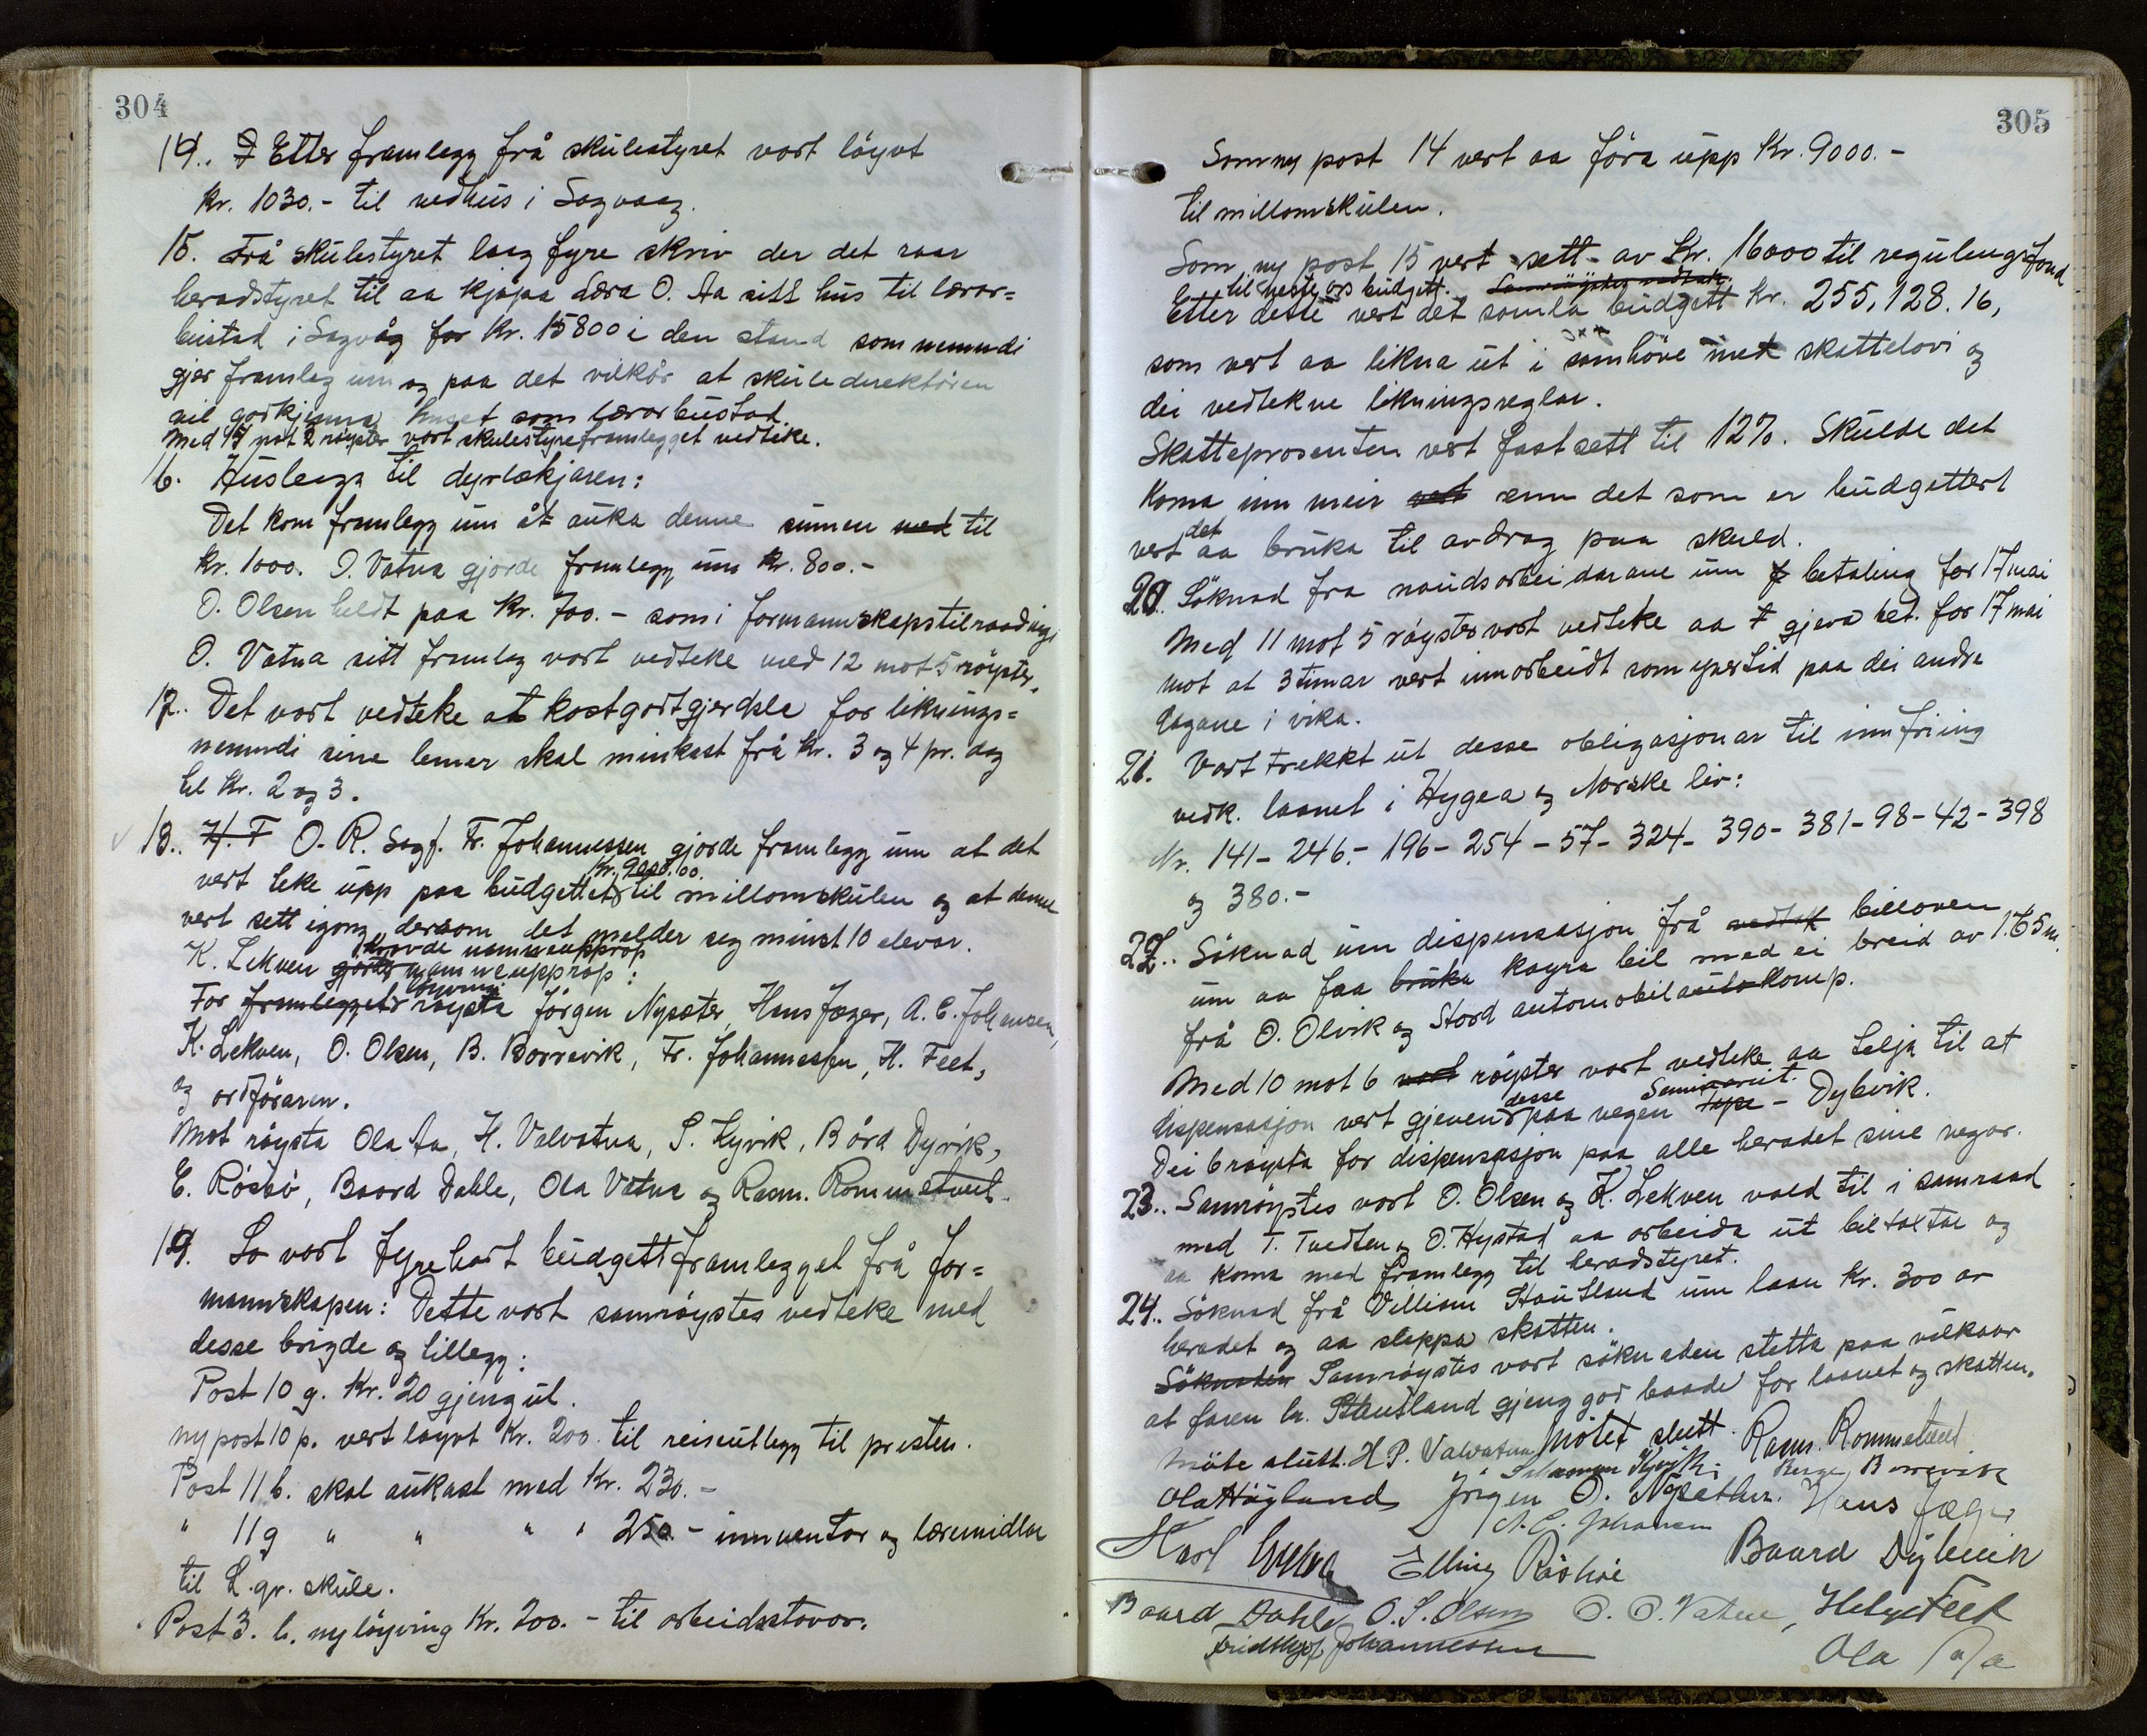 304
14. Etter framlegg frå skulestyret vart löyvt
kr. 1030.- til vedhus i Sagvaag.
15. Frå skulestyret laag fyre skriv der det raar
heradstyret til aa kjöpa Lära O. Aa sitt hus til lærar=
bustad i Sagvåg for kr. 15800 i den stand som nemndi
gjer framlegg um og paa det vilkår at skuledirektören
vil godkjenna huset som lærarbustad.
Med 15 mot 2 röyster vart skulestyreframlegget vedteke.
16. Husleiga til dyrlækjaren:
Det kom framlegg um åt auka denne summen med til
kr. 1000. O. Vatna gjorde framlegg um kr. 800.-
O. Olsen heldt paa kr. 700.- som i formannskapstilraadingi
O. Vatna sitt framlegg vart vedteke med 12 mot 5 röyster.
17. Det vart vedteke at kostgodtgjerdsle for liknings=
nemndi sine lemer skal minkast frå kr. 3 og 4 pr. dag
til kr. 2 og 3.
18. H. F O. R. Sagf. Fr. Johannessen gjorde framlegg um at det
vert teke upp paa budgettet kr. 9000.00. til millomskulen og at denne
vert sett igong dersom det melder seg minst 10 elevar.
kravde namneupprop
K. Lekven gjorde namneupprop:
löyving
For framlegget röysta Jörgen Nysæter, Hans Jæger, A. C. Johansen,
K. Lekven, O. Olsen, B. Borrevik, Fr. Johannessen, H. Feet,
og ordföraren.
Mot röysta Ola Aa, H. Valvatna, S. Kyvik, Bård Dyvik,
E. Röshö, Baard Dahle, Ola Vatna og Rasm. Rommetveit.
19. So vart fyrehavt budgettframlegget frå for=
mannskapen: Dette vart samröystes vedteke med
desse brigde og tillegg:
Post 10 g. Kr. 20 gjeng ut.
ny post 10 p. vert löyvt Kr. 200 til reiseutlegg til presten.
Post 11 b. skal aukast med Kr. 230.-
" 11 g " " " " 250.- innventar og læremidlar
til L. gr. skule.
Post 3. h. ny löyving Kr. 200.- til arbeidsstovor.
305
Som ny post 14 vert aa föra upp Kr. 9000.-
til millomskulen.
Som ny post 15 vert sett av Kr. 16000 til regulengsfond
til neste års budgett. Samröystes vedteke
Etter dette vert det samla budgett kr. 255,128.16,
som vert aa likna ut i samhöve med skattelovi og
dei vedtekne likningsreglar.
Skatteprosenten vert fastsett til 12%. Skulde det
koma inn meir vert enn det som er budgettert
vert det aa bruka til avdrag paa skuld.
20. Söknad fra naudsarbeidarane um betaling for 17 mai
Med 11 mot 5 röyster vart vedteke aa gjeva bet. for 17 mai
mot at 3 timar vert innarbeidt som yvertid paa dei andre
dagane i vika.
21. Vart trekkt ut desse obligasjonar til innfriing
vedk. laanet i Hygea og Norske liv:
Nr. 141 - 246 - 196 - 254 - 57 - 324 - 390 - 381 - 98 - 42 - 398
og 380.-
22. Söknad um dispensasjon frå vedtak billoven
um aa faa bruka köyra bil med ei breid av 1.65 m.
frå O. Olvik og Stord automobilautokomp.
Med 10 mot 6 vart röyster vart vedteke aa telja til at
dispensasjon vert gjeven desse paa vegen Type Seminariet - Dybvik.
Dei 6 röysta for dispensasjon paa alle heradet sine vegar.
23. Samröystes vart O. Olsen og K. Lekven vald til i samraad
med T. Tvedten og O. Hystad aa arbeida ut biltakstar og
aa koma med framlegg til heradstyret.
24. Söknad frå Villiam Stautland um laan kr. 300 av
heradet og aa sleppa skatten.
Söknaden Samröystes vart söknaden stetta paa vilkaar
at faren hr. Stautland gjeng god baade for laanet og skatten.
Möte slutt. H P. Valvatna Mötet slutt. Rasm. Rommetveit
Salamon Kyvik. Berge Borrevik
Ola Höyland Jörgen O. Nysæther. Hans Jæger
A. C. Johansen
Karl Lekven Elling Röshöe Baard Dybvik
Baard Dahle O. S. Olsen O. O. Vatna, Helge Feet
Fridthjof Johannessen Ola Aa